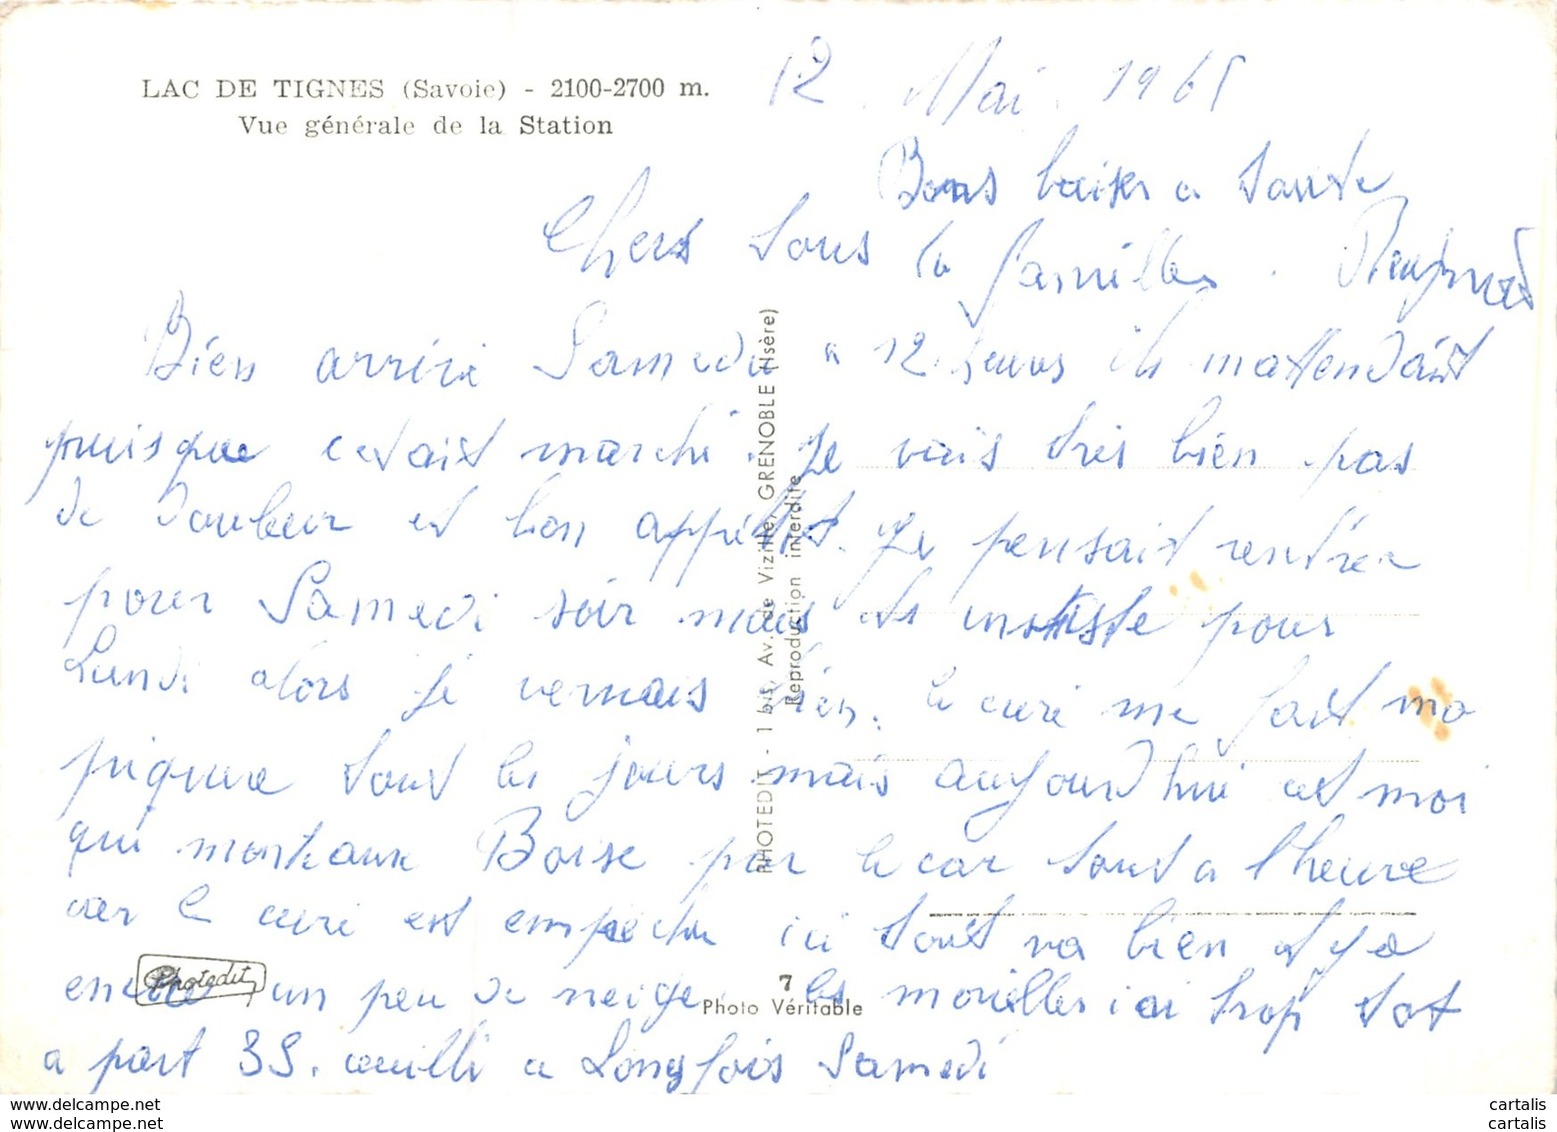 LAC DE TIGNES (Savoie) - 2100-2700 m.
Vue générale de la Station
12 Mai 1965
Bons baisers a toute
la famille.
Chers tous
Bien arrivé Samedi a 12 heures ils mattendait
puisque cetait marché. Je vais très bien pas
de douleur et bon appétit. Je pensait rentrer
pour Samedi soir mais ils insiste pour
Lundi alors je verrais bien. le curé me fait ma
piqure tout les jours mais aujourdhui cet moi
qui monte aux Boise par le car tout a l'heure
car le curé est empeché ici tout va bien il y a
encore un peu de neige les morilles ici trop tot
a part 35. cueilli a Longefois Samedi
PHOTEDIT - 1 bis, Av. de Vizille, GRENOBLE (Isère)
Reproduction interdite
Photedit
7
Photo Véritable
www.cartalis.com
www.cartalis.com
cartalis
cartalis